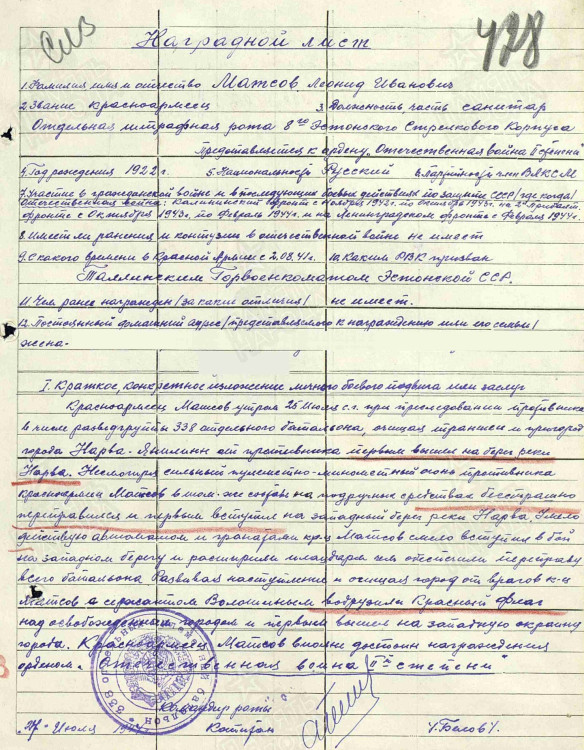 Спз
478
Наградной лист
1. Фамилия имя и отчество Матсов Леонид Иванович
2. Звание красноармеец 3. Должность, часть санитар
Отдельная штрафная рота 8го Эстонского Стрелкового Корпуса
Представляется к ордену „Отечественная война II степени"
4. Год рождения 1922 г. 5. Национальность Русский 6. Партийность член ВЛКСМ
7. Участие в гражданской войне и в последующих боевых действиях по защите СССР /где, когда/
Отечественная война: Калининский фронт с Ноября 1942 г. по Октябрь 1943 г. на 2ой Прибалт.
фронте с Октября 1943 г. по Февраль 1944 г. и на Ленинградском фронте с Февраля 1944 г.
8. Имеет ли ранения и контузии в отечественной войне не имеет
9. С какого времени в Красной Армии с 2.08.41 г. 10. Каким РВК призван
Таллинским Горвоенкоматом Эстонской ССР.
11. Чем ранее награжден /за какие отличия/ не имеет.
12. Постоянный домашний адрес /представляемого к награждению или его семьи/
жена-
I. Краткое, конкретное изложение личного боевого подвига или заслуг
Красноармеец Матсов утром 25 Июля с.г. при преследовании противника
в числе разведгруппы 338 отдельного батальона, очищая траншеи и пригород
города Нарва. от противника первым вышел на берег реки
Нарва. Несмотря сильный пулеметно-минометный огонь противника
красноармеец Матсов в том-же составе на подручных средствах бесстрашно
переправился и первым вступил на западный берег реки Нарва. Умело
действуя автоматом и гранатами кр-ец Матсов смело вступил в бой
на западном берегу и расширили плацдарм чем обеспечили переправу
всего батальона. Развивая наступление и очищая город от врагов к-ц
Матсов с сержантом Волошиным водрузили Красный флаг
над освобожденным городом и первым вышел на западную окраину
города. Красноармеец Матсов вполне достоин награждения
орденом „Отечественная война IIой степени"
Командир роты
Июля 1944 г. Капитан /Белов/.